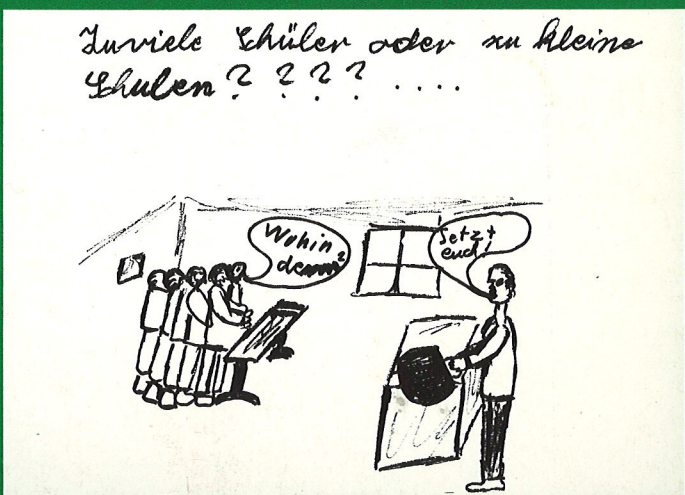 Zuviele Schüler oder zu kleine
Schulen ? ? ? ? ....
Wohin
denn?
Setzt
euch!